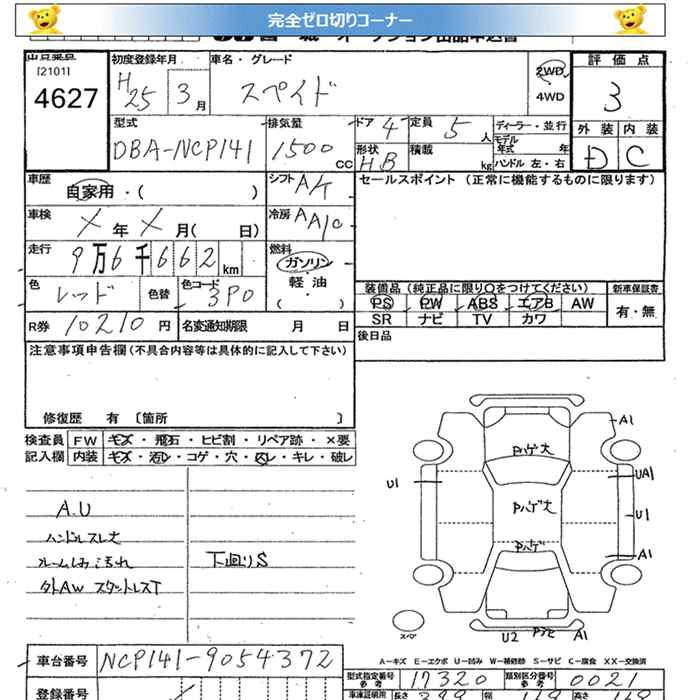 完全ゼロ切りコーナー
宮城 オークション出品申込書
出品票店
[2101]
4627
初度登録年月
H25 3月
車名・グレード
スペイド
2WD
4WD
評価点
3
外装 内装
D C
型式
DBA-NCP141
排気量
1500 CC
ドア 4
定員 5 人
ディーラー・並行
モデル年式 年
形状 HB
積載 kg
ハンドル 左・右
車歴
自家用・( )
シフト A/T
セールスポイント (正常に機能するものに限ります)
車検
X 年 X 月( 日)
冷房 AA/C
走行
9万6千662 km
燃料
ガソリン
軽・油
( )
色
レッド
色替
色コード
3P0
装備品 (純正品に限り○をつけてください)
新車保証書
PS PW ABS エアB AW
有・無
SR ナビ TV カワ
R券 10210 円
名変通知期限 月 日
後日品
注意事項申告欄 (不具合内容等は具体的に記入して下さい)
修復歴 有 〔箇所 〕
検査員記入欄
FW キズ・飛石・ヒビ割・リペア跡・×要
内装 キズ・汚レ・コゲ・穴・凹レ・キレ・破レ
A.U
ハンドルスレ大
ルームしみ汚れ
外AW スタットレスT
下回りS
A1
Pハゲ大
U1
UA1
Pハゲ大
U1
Pハゲ
A1
スペア
U2
Pアセ
A1
A-キズ E-エクボ U-凹み W-補修跡 S-サビ C-腐食 XX-交換済
車台番号 NCP141-9054372
型式指定番号 参考 17320
類別区分番号 参考 0021
登録番号
車庫証明用 参考
長さ 399
幅 169
高さ